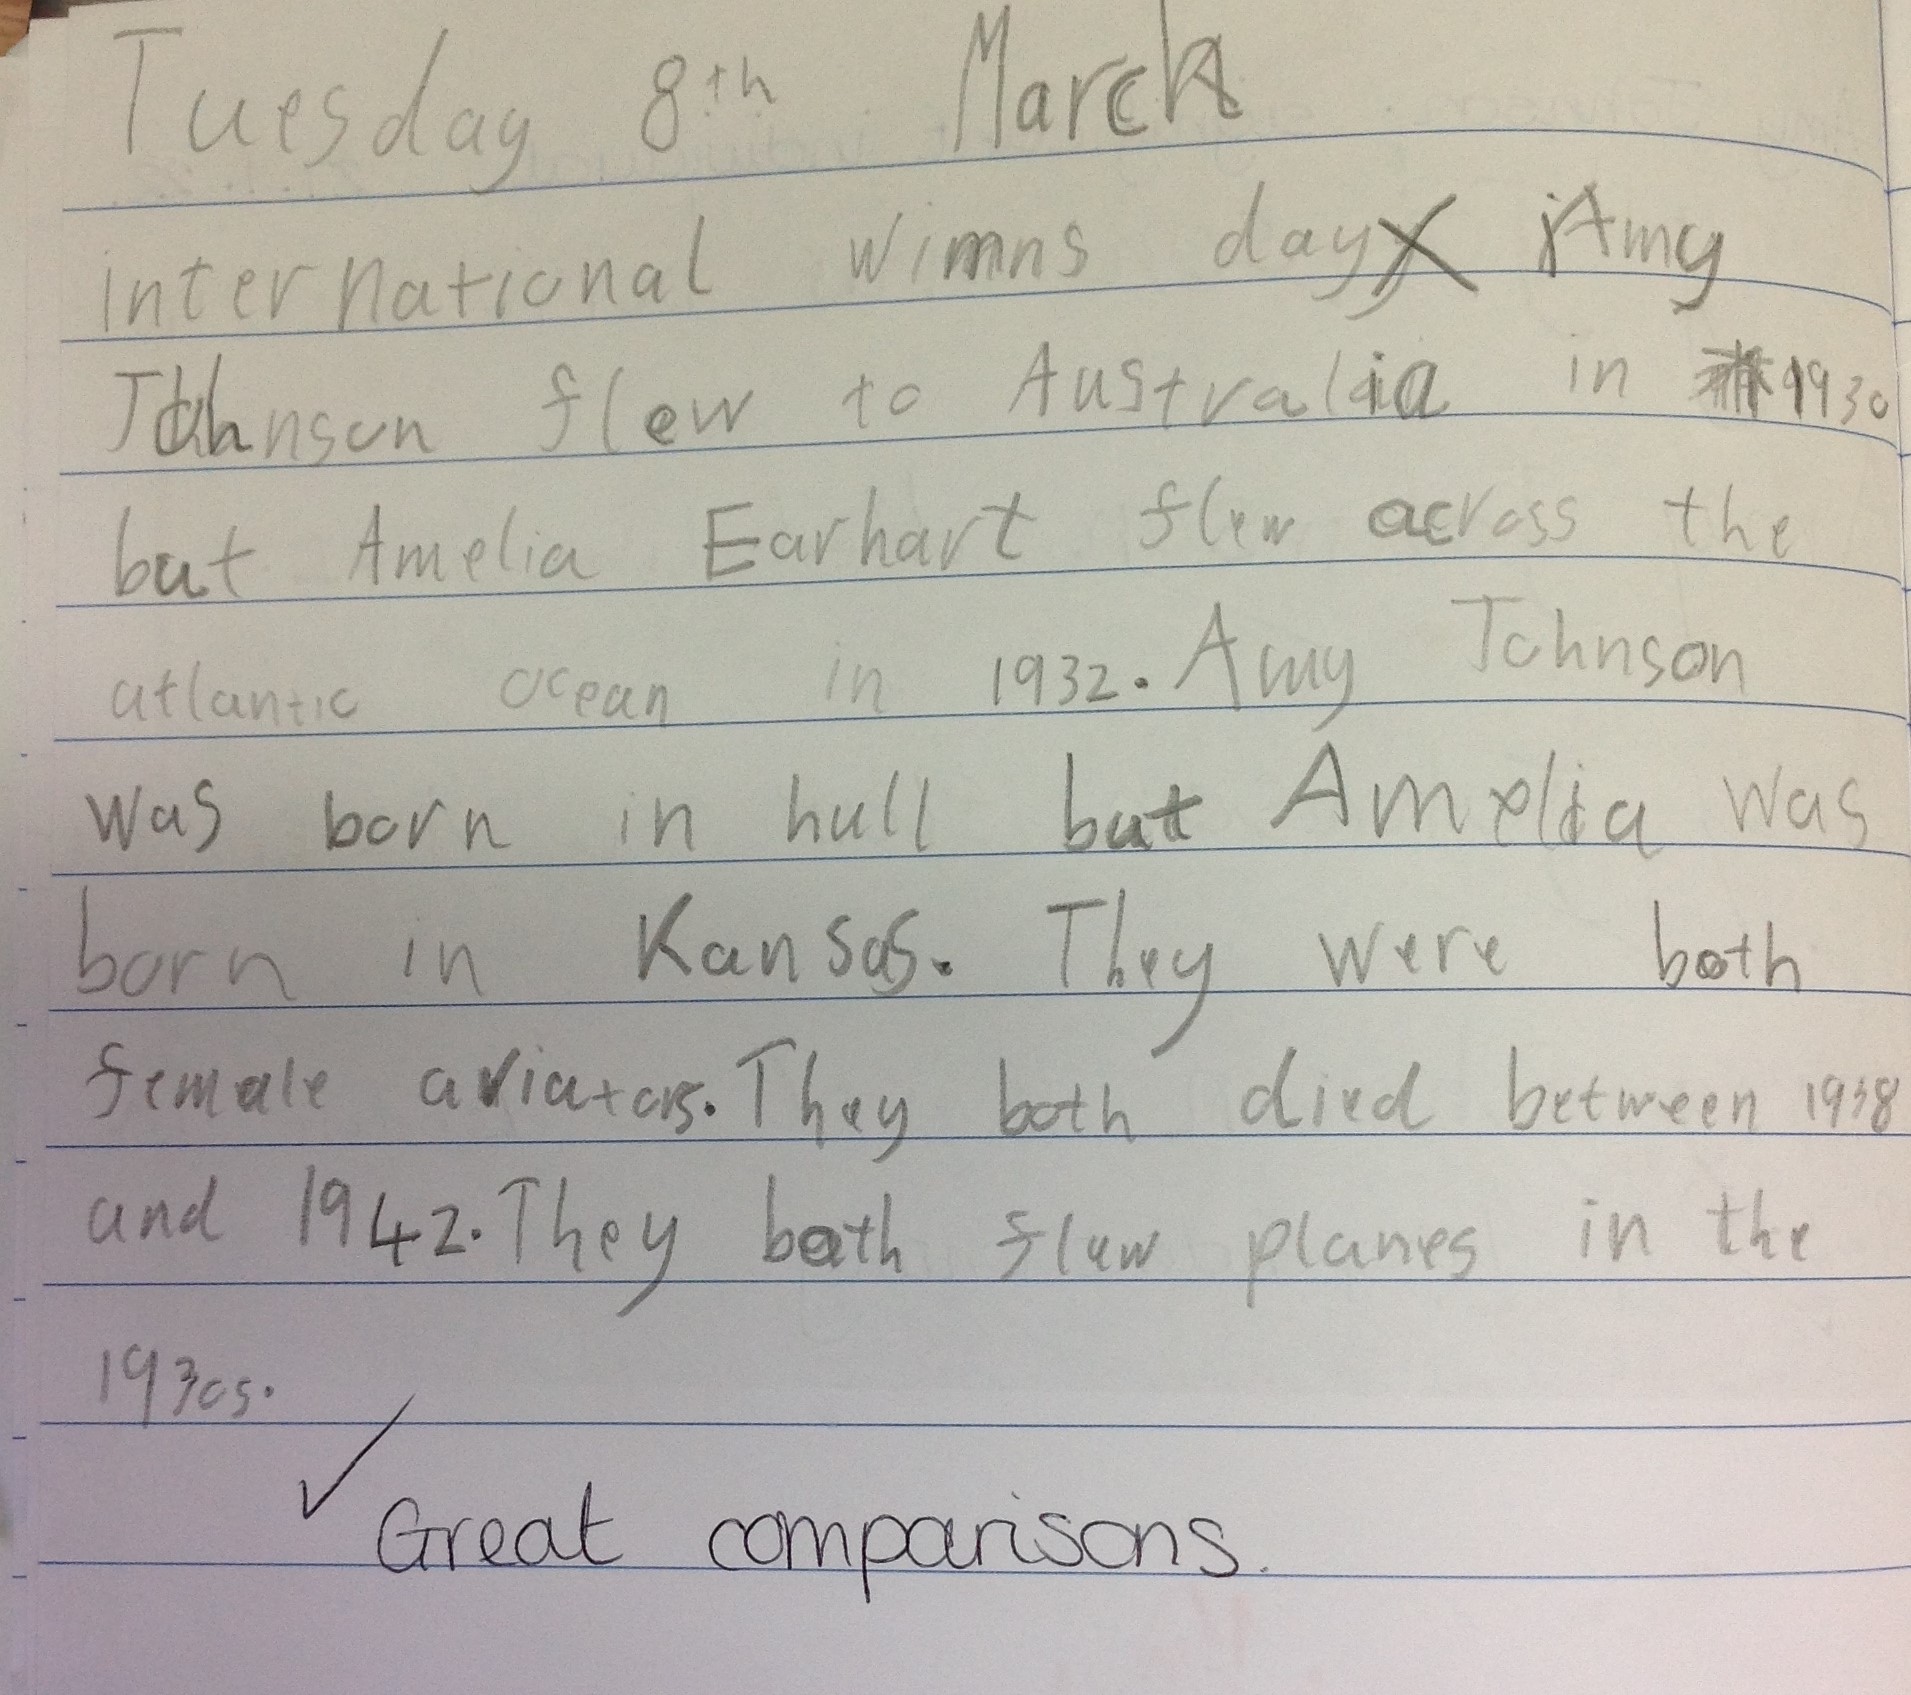 Tuesday 8th March
international wimns day Amy
Johnson flew to Australia in 1930
but Amelia Earhart flew across the
atlantic ocean in 1932. Amy Johnson
was born in hull but Amelia was
born in Kansas. They were both
female aviators. They both died between 1938
and 1942. They both flew planes in the
1930s.
Great comparisons.